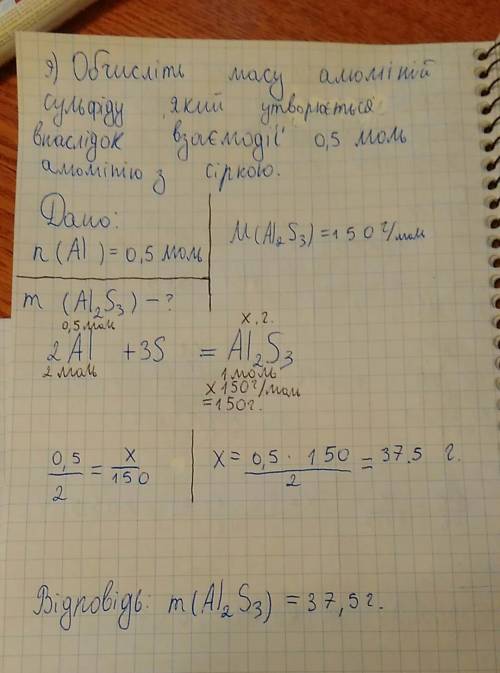 я) Обчисліть масу алюміній
сульфіду, який утворюється
внаслідок взаємодії 0,5 моль
алюмінію з сіркою.
Дано:
n (Al) = 0,5 моль
M(Al₂S₃) = 150 г/моль
m (Al₂S₃) – ?
0,5 моль x, г.
2Al + 3S = Al₂S₃
2 моль 1 моль
x 150 г/моль
= 150 г.
0,5/2 = x/150
x = 0,5 · 150/2 = 37.5 г.
Відповідь: m(Al₂S₃) = 37,5 г.